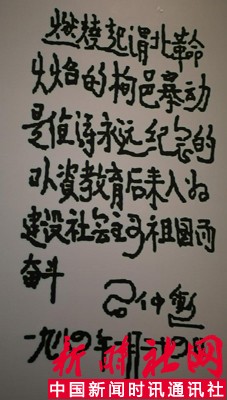 燃烧起渭北革命
火焰的枸邑暴动
是值得永远纪念的
以資教育后来人为
建设社会主义祖国而
奋斗
仲勋
一九
新时社网
中国新闻时讯通讯社